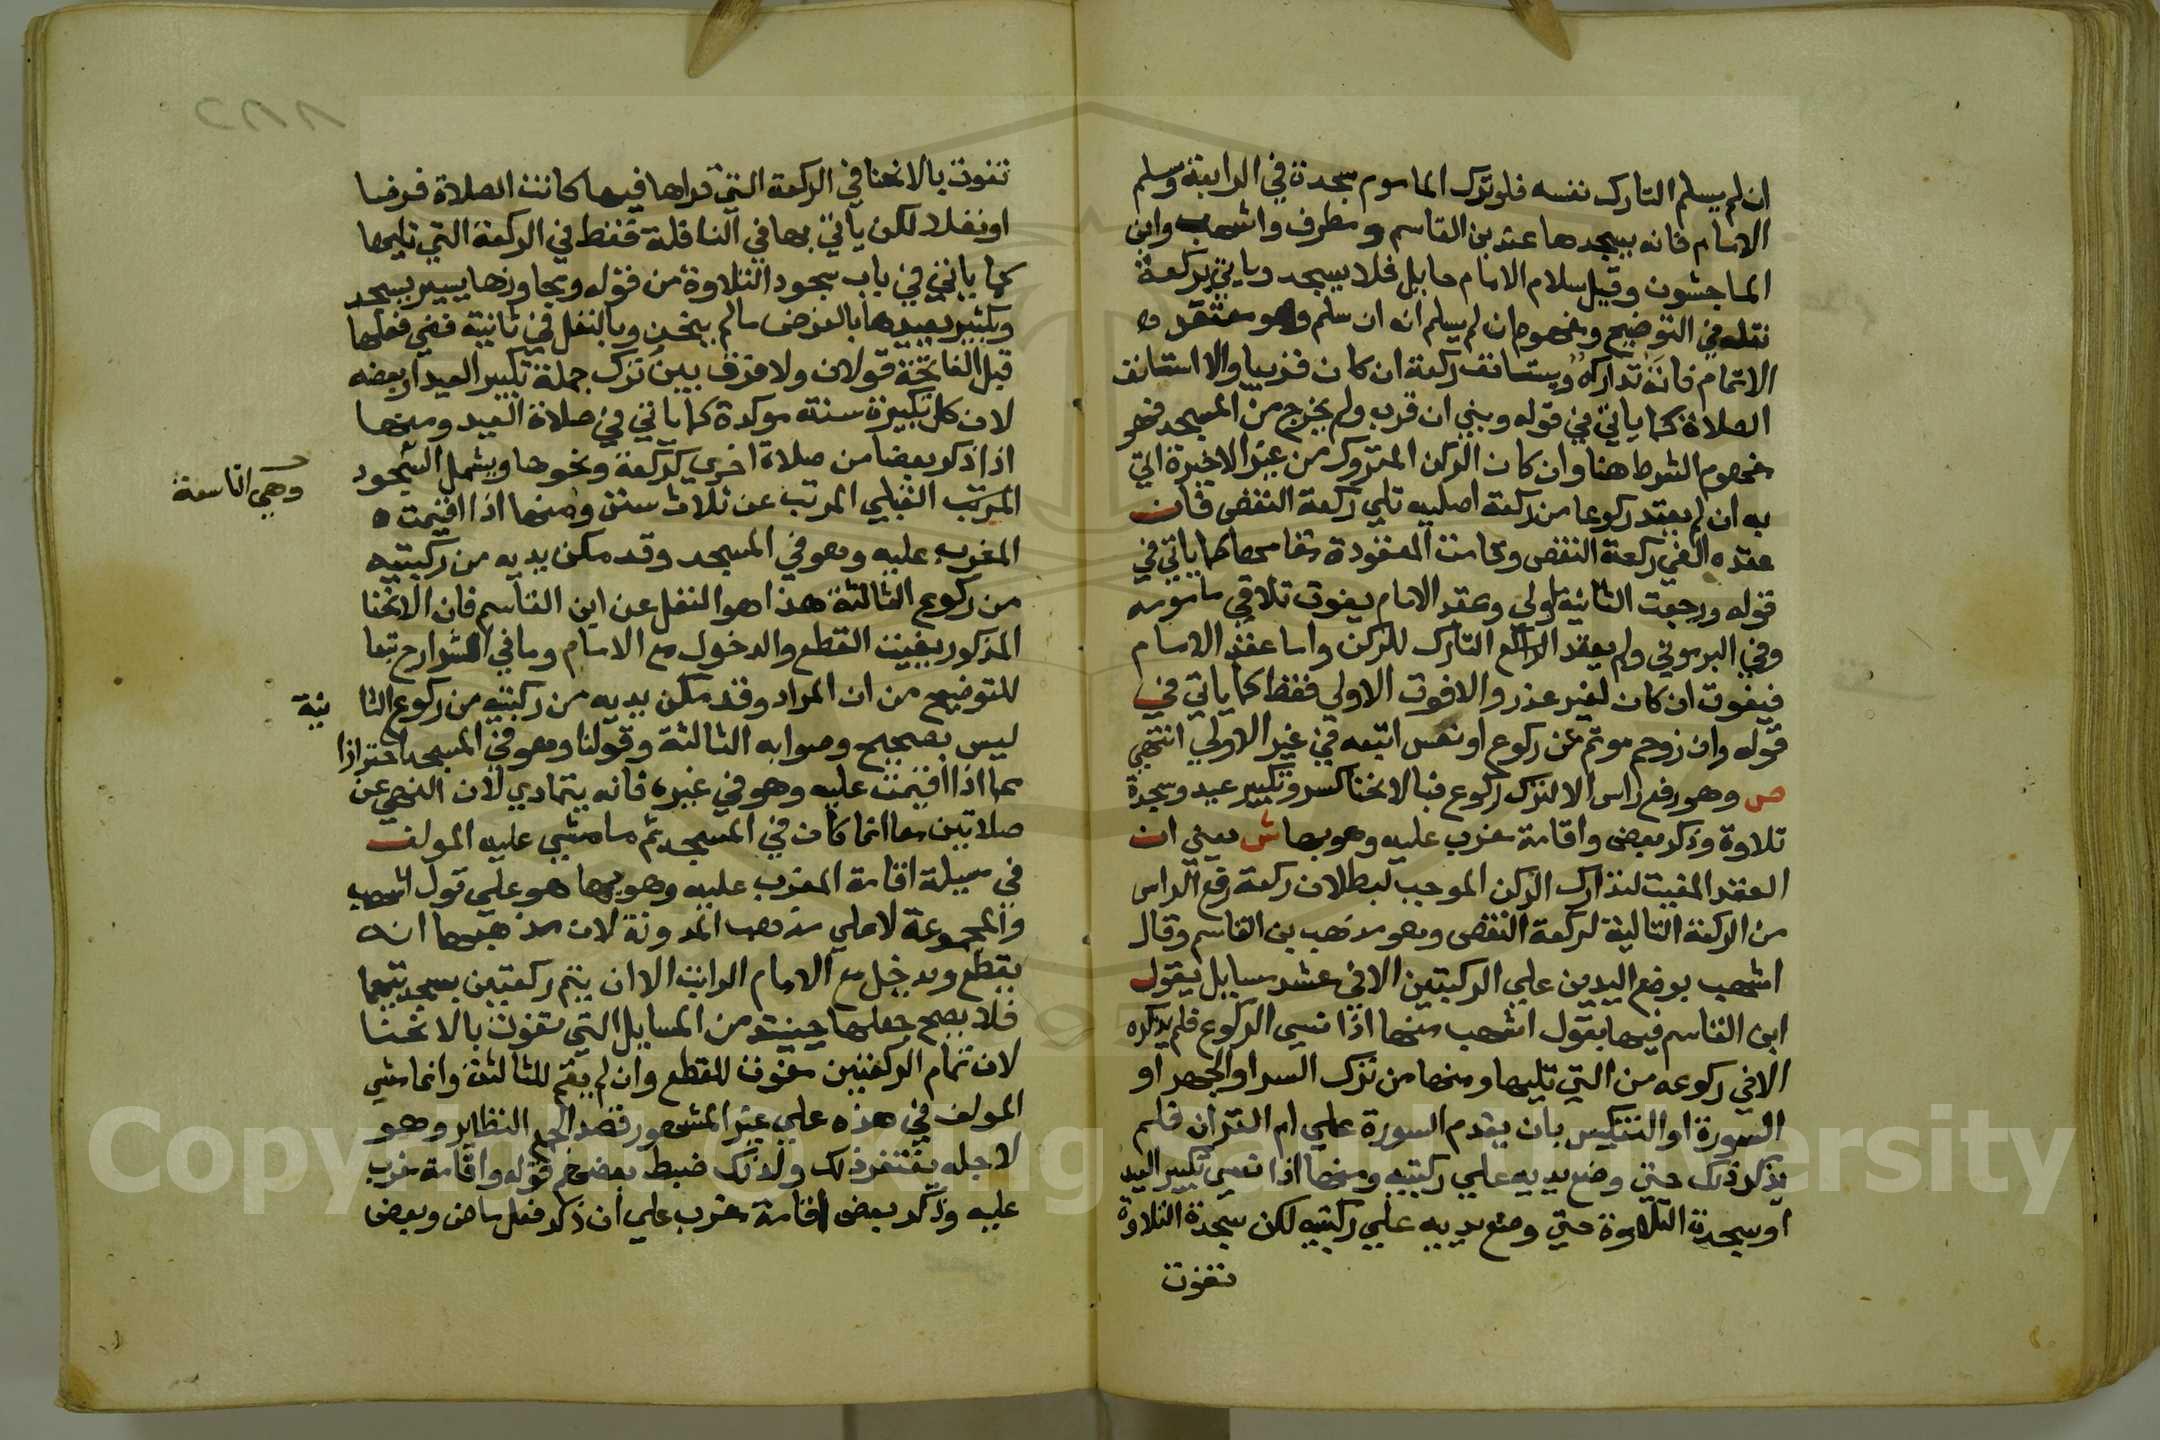 ان لم يسلم التارك نفسه فلو ترك الماموم سجدة في الرابعة وسلم
الامام فانه يسجدها عند بن القاسم ومطرف واشهب وابن
الماجشون وقيل سلام الامام حايل فلا يسجد وياتي بركعة
نقله في التوضيح ومفهوم ان لم يسلم انه ان سلم وهو معتقد
الاتمام فانه تداركه ويستانف ركعة ان كان قريبا والا استانف
الصلاة كما ياتي في قوله وبني ان قرب ولم يخرج من المسجد فهو
مفهوم الشرط هنا وان كان الركن المتروك من غير الاخيرة اتي
به ان لم يعقد ركوعا من ركعة اصليه تلي ركعة النقص فان
عقده الغي ركعة النقص وقامت المعقودة مقامها كما ياتي في
قوله ورجعت الثانية اولي وعقد الامام يفوت تلافي مامومه
وفي البرموني ولم يعقد الراكع التارك للركن واما عقد الامام
فيفوت ان كان لغير عذر والا فوت الاولي فقط كما ياتي في
قوله وان زوحم موتم عن ركوع او نعس اتبعه في غير الاولي انتهي
ص وهو رفع راس الا لترك ركوع فبالانحنا كسر وتكبير عيد وسجدة
تلاوة وذكر بعض واقامة مغرب عليه وهو بها ش يعني ان
العقد المفيت لتدارك الركن الموجب لبطلان ركعة رفع الراس
من الركعة التالية لركعة النقص وهو مذهب بن القاسم وقال
اشهب بوضع اليدين علي الركبتين الا في عشر مسايل يقول
ابن القاسم فيها بقول اشهب منها اذا نسي الركوع فلم يذكره
الا في ركوعه من التي تليها ومنها من ترك السر او الجهر او
السورة او التنكيس بان يقدم السورة علي ام القران فلم
يذكر ذلك حتي وضع يديه علي ركبتيه ومنها اذا نسي تكبير العيد
او سجدة التلاوة حتي وضع يديه علي ركبتيه لكن سجدة التلاوة
تفوت
تفوت بالانحنا في الركعة التي قراها فيها كانت الصلاة فرضا
او نفلا لكن ياتي بها في النافلة فقط في الركعة التي تليها
كما ياتي في باب سجود التلاوة من قوله ومجاوزها بيسير يسجد
وبكثير يعيدها بالفرض ما لم ينحن وبالنفل في ثانيته ففي فعلها
قبل الفاتحة قولان ولا فرق بين ترك جملة تكبير العيد او بعضه
لان كل تكبيرة سنة موكدة كما ياتي في صلاة العيد ومنها
اذا ذكر بعضا من صلاة اخري كركعة ونحوها ويشمل السجود
المرتب القبلي المرتب عن ثلاث سنن ومنها اذا اقيمت
وهي التاسعة
المغرب عليه وهو في المسجد وقد مكن يديه من ركبتيه
من ركوع الثالثة هذا هو النقل عن ابن القاسم فان الانحنا
المذكور يفيت القطع والدخول مع الامام وما في الشارح تبعا
للتوضيح من ان المراد وقد مكن يديه من ركبتيه من ركوع الثا نية
ليس بصحيح وصوابه الثالثة وقولنا وهو في المسجد احترازا
مما اذا اقيمت عليه وهو في غيره فانه يتمادي لان النهي عن
صلاتين معا انما كان في المسجد ثم ما مشي عليه المولف
في مسيلة اقامة المغرب عليه وهو بها هو علي قول اشهب
والمجموعة لا علي مذهب المدونة لان مذهبها انه
يقطع ويدخل مع الامام الراتب الا ان يتم ركعتين بسجدتيهما
فلا يصح جعلها حينيذ من المسايل التي تفوت بالانحنا
لان تمام الركعتين مفوت للقطع وان لم يقم للثالثة وانما مشي
المولف في هذه علي غير المشهور قصد الجمع النظاير وهو
لاجله يغتفر ذلك ولذلك ضبط بعضهم قوله واقامة مغرب
عليه وذكر بعض اقامة مغرب علي ان ذكر فعل ماض وبعض
Copyright © King Saud University